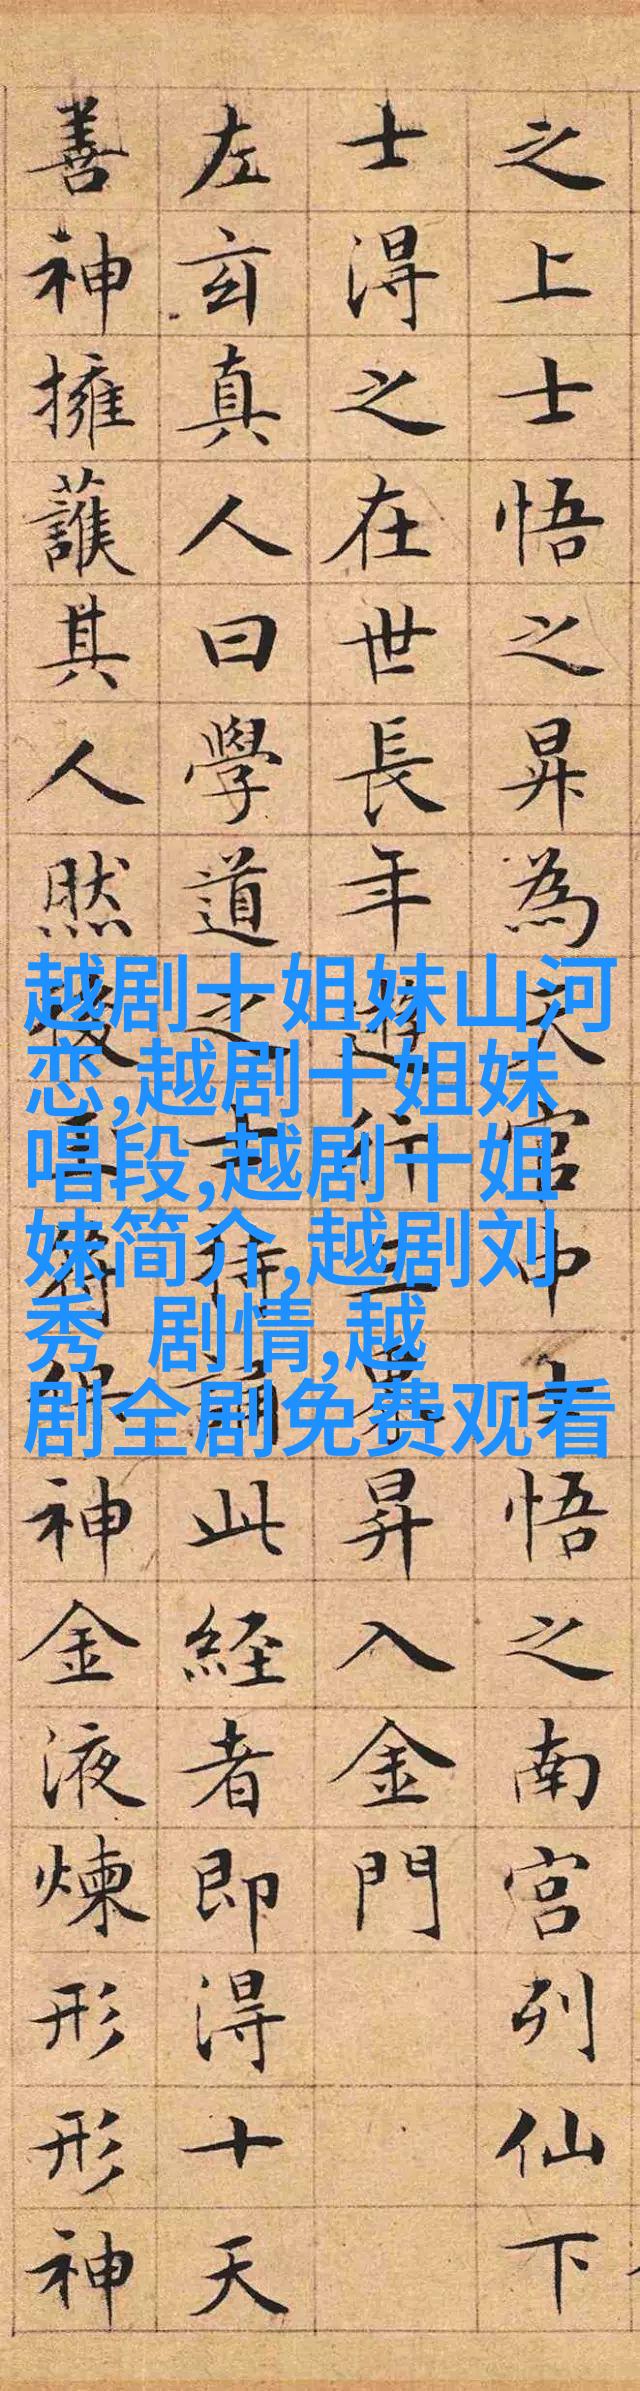 之上士悟之昇為天官中士悟之南宮列仙下
士淂之在世長年遊行三界昇入金門
左玄真人曰學道之士持誦此経者即淂十天
善神擁䕶其人然後玉符保神金液煉形形神
越剧十姐妹山河
恋,越剧十姐妹
唱段,越剧十姐
妹简介,越剧刘
秀 剧情,越
剧全剧免费观看